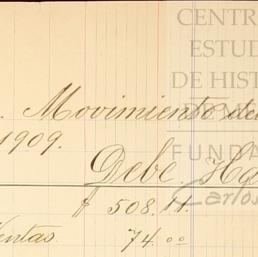 CENTR
ESTUD
DE HIST
. Movimiento de
1909.
FUNDA
Debe Ha
Carlos
$ 508.11.
Ventas. 74.00